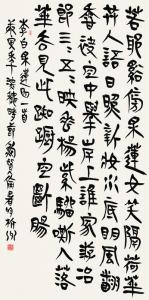 若耶谿傍采蓮女笑隔荷華
共人語日照新妝水底明風飄
香袂空中舉岸上誰家游冶
郎三三五五映垂楊紫騮嘶入落
華去見此踟躕空斷腸
李白采蓮曲一首
庚寅年